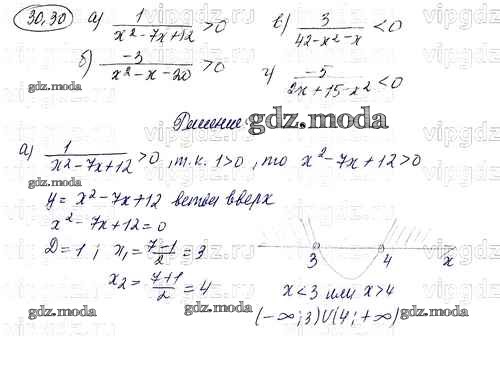 30.30 а) 1/(x²-7x+12) >0 в) 3/(42-x²-x) <0
б) -3/(x²-x-20) >0 г) -5/(2x+15-x²) <0
gdz.moda
Решение gdz.moda
а) 1/(x²-7x+12) >0, т.к. 1>0, то x²-7x+12>0
y = x²-7x+12 ветви вверх
x²-7x+12=0
D=1; x₁ = (7-1)/2 = 3
x₂ = (7+1)/2 = 4
3 4 x
x<3 или x>4
(-∞;3)∪(4;+∞)
gdz.moda
gdz.moda